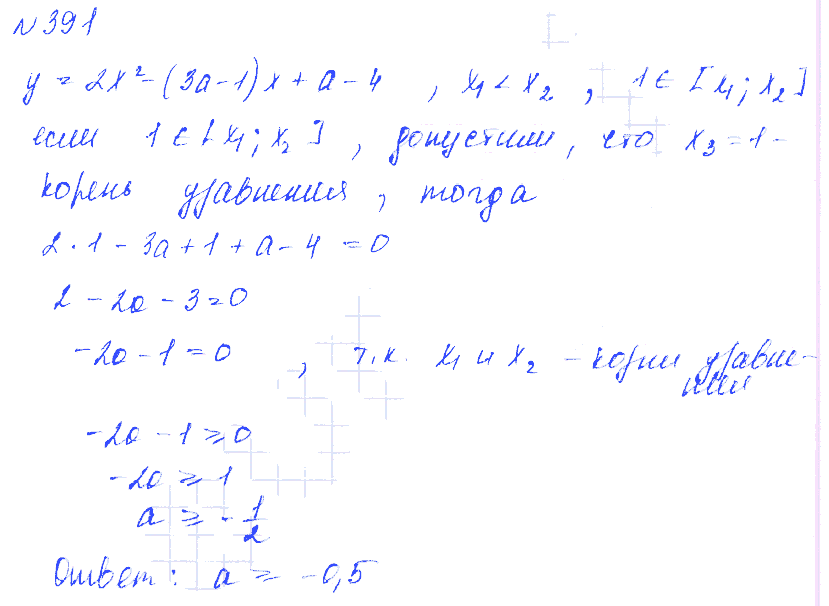 N 391
y = 2x² - (3a-1)x + a - 4 , x₁ < x₂ , 1 ∈ [x₁; x₂]
если 1 ∈ [x₁; x₂] , допустим, что x₃ = 1 -
корень уравнения, тогда
2 · 1 - 3a + 1 + a - 4 = 0
2 - 2a - 3 = 0
-2a - 1 = 0 , т.к. x₁ и x₂ - корни уравне-
ния
-2a - 1 ≥ 0
-2a ≥ 1
a ≥ -1/2
Ответ: a ≥ -0,5